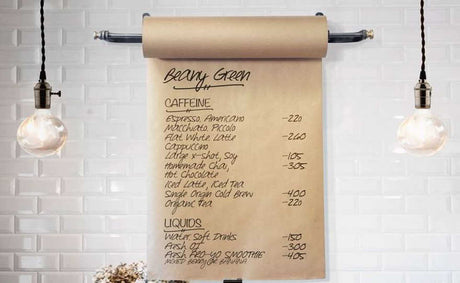 Beany Green
CAFFEINE
Espresso, Americano -220
Macchiato, Piccolo
Flat White, Latte -260
Cappuccino
Large x-shot, Soy -105
Homemade Chai, -305
Hot Chocolate
Iced Latte, Iced Tea
Single Origin Cold Brew -400
Organic tea -220
LIQUIDS
Water, Soft Drinks -150
Fresh OJ -300
Fresh PRO-YO SMOOTHIE -405
MIXED BERRY OR BANANA